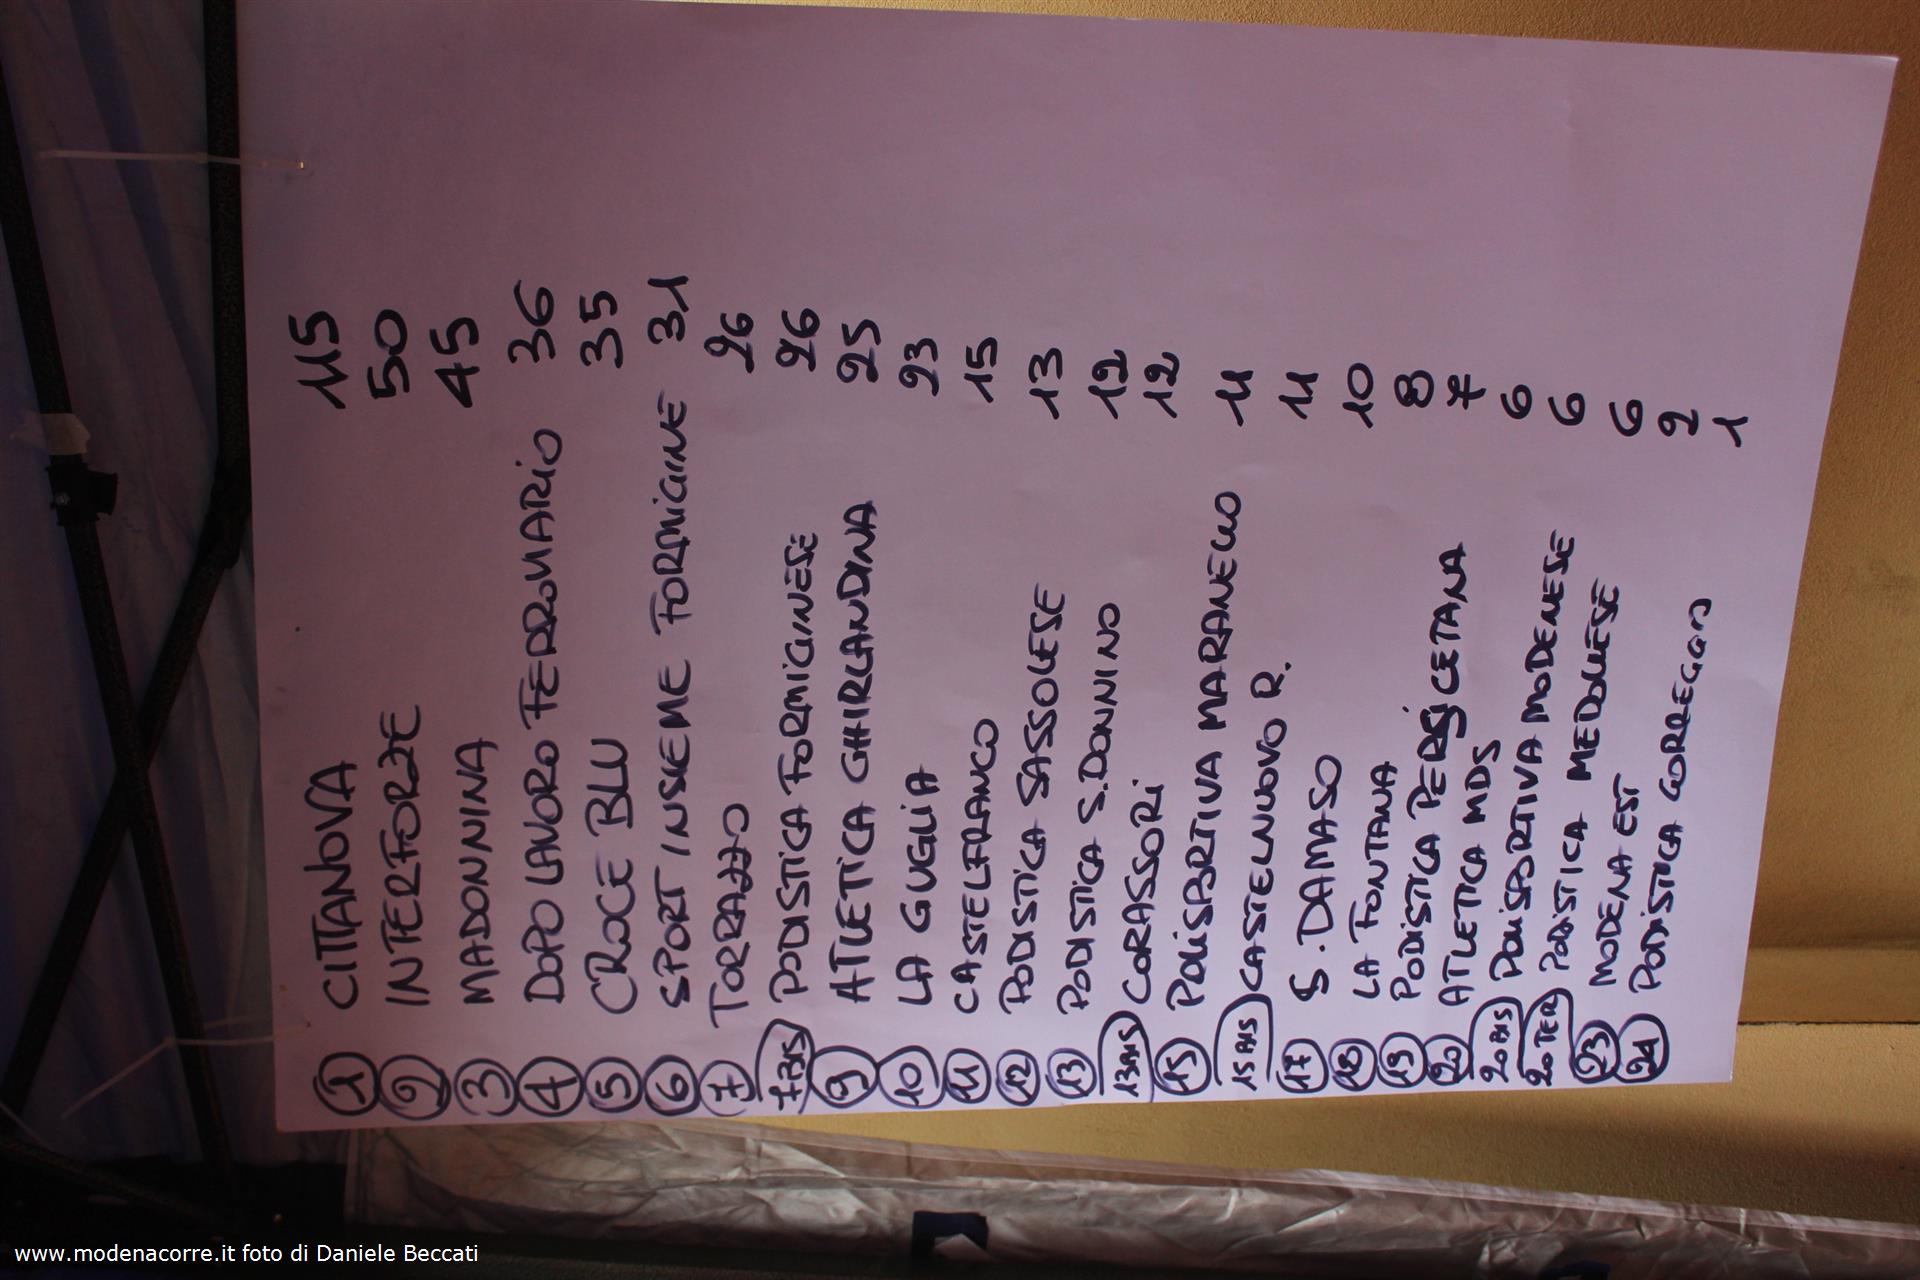 1 CITTANOVA 115
2 INTERFORZE 50
3 MADONNINA 45
4 DOPO LAVORO FERROVIARIO 36
5 CROCE BLU 35
6 SPORT INSIEME FORMIGINE 31
7 TORRAZZO 26
7 BIS PODISTICA FORMIGINESE 26
9 ATLETICA GHIRLANDINA 25
10 LA GUGLIA 23
11 CASTELFRANCO 15
12 PODISTICA SASSOLESE 13
13 PODISTICA S.DONNINO 12
13 BIS CORASSORI 12
15 POLISPORTIVA MARANELLO 11
15 BIS CASTELNUOVO R. 11
17 S. DAMASO 10
18 LA FONTANA 8
19 PODISTICA PERSICETANA 7
20 ATLETICA MDS 6
20 BIS POLISPORTIVA MODENESE 6
20 TER PODISTICA MEDOLLESE 6
23 MODENA EST 2
24 PODISTICA CORREGGIO 1
www.modenacorre.it foto di Daniele Beccati